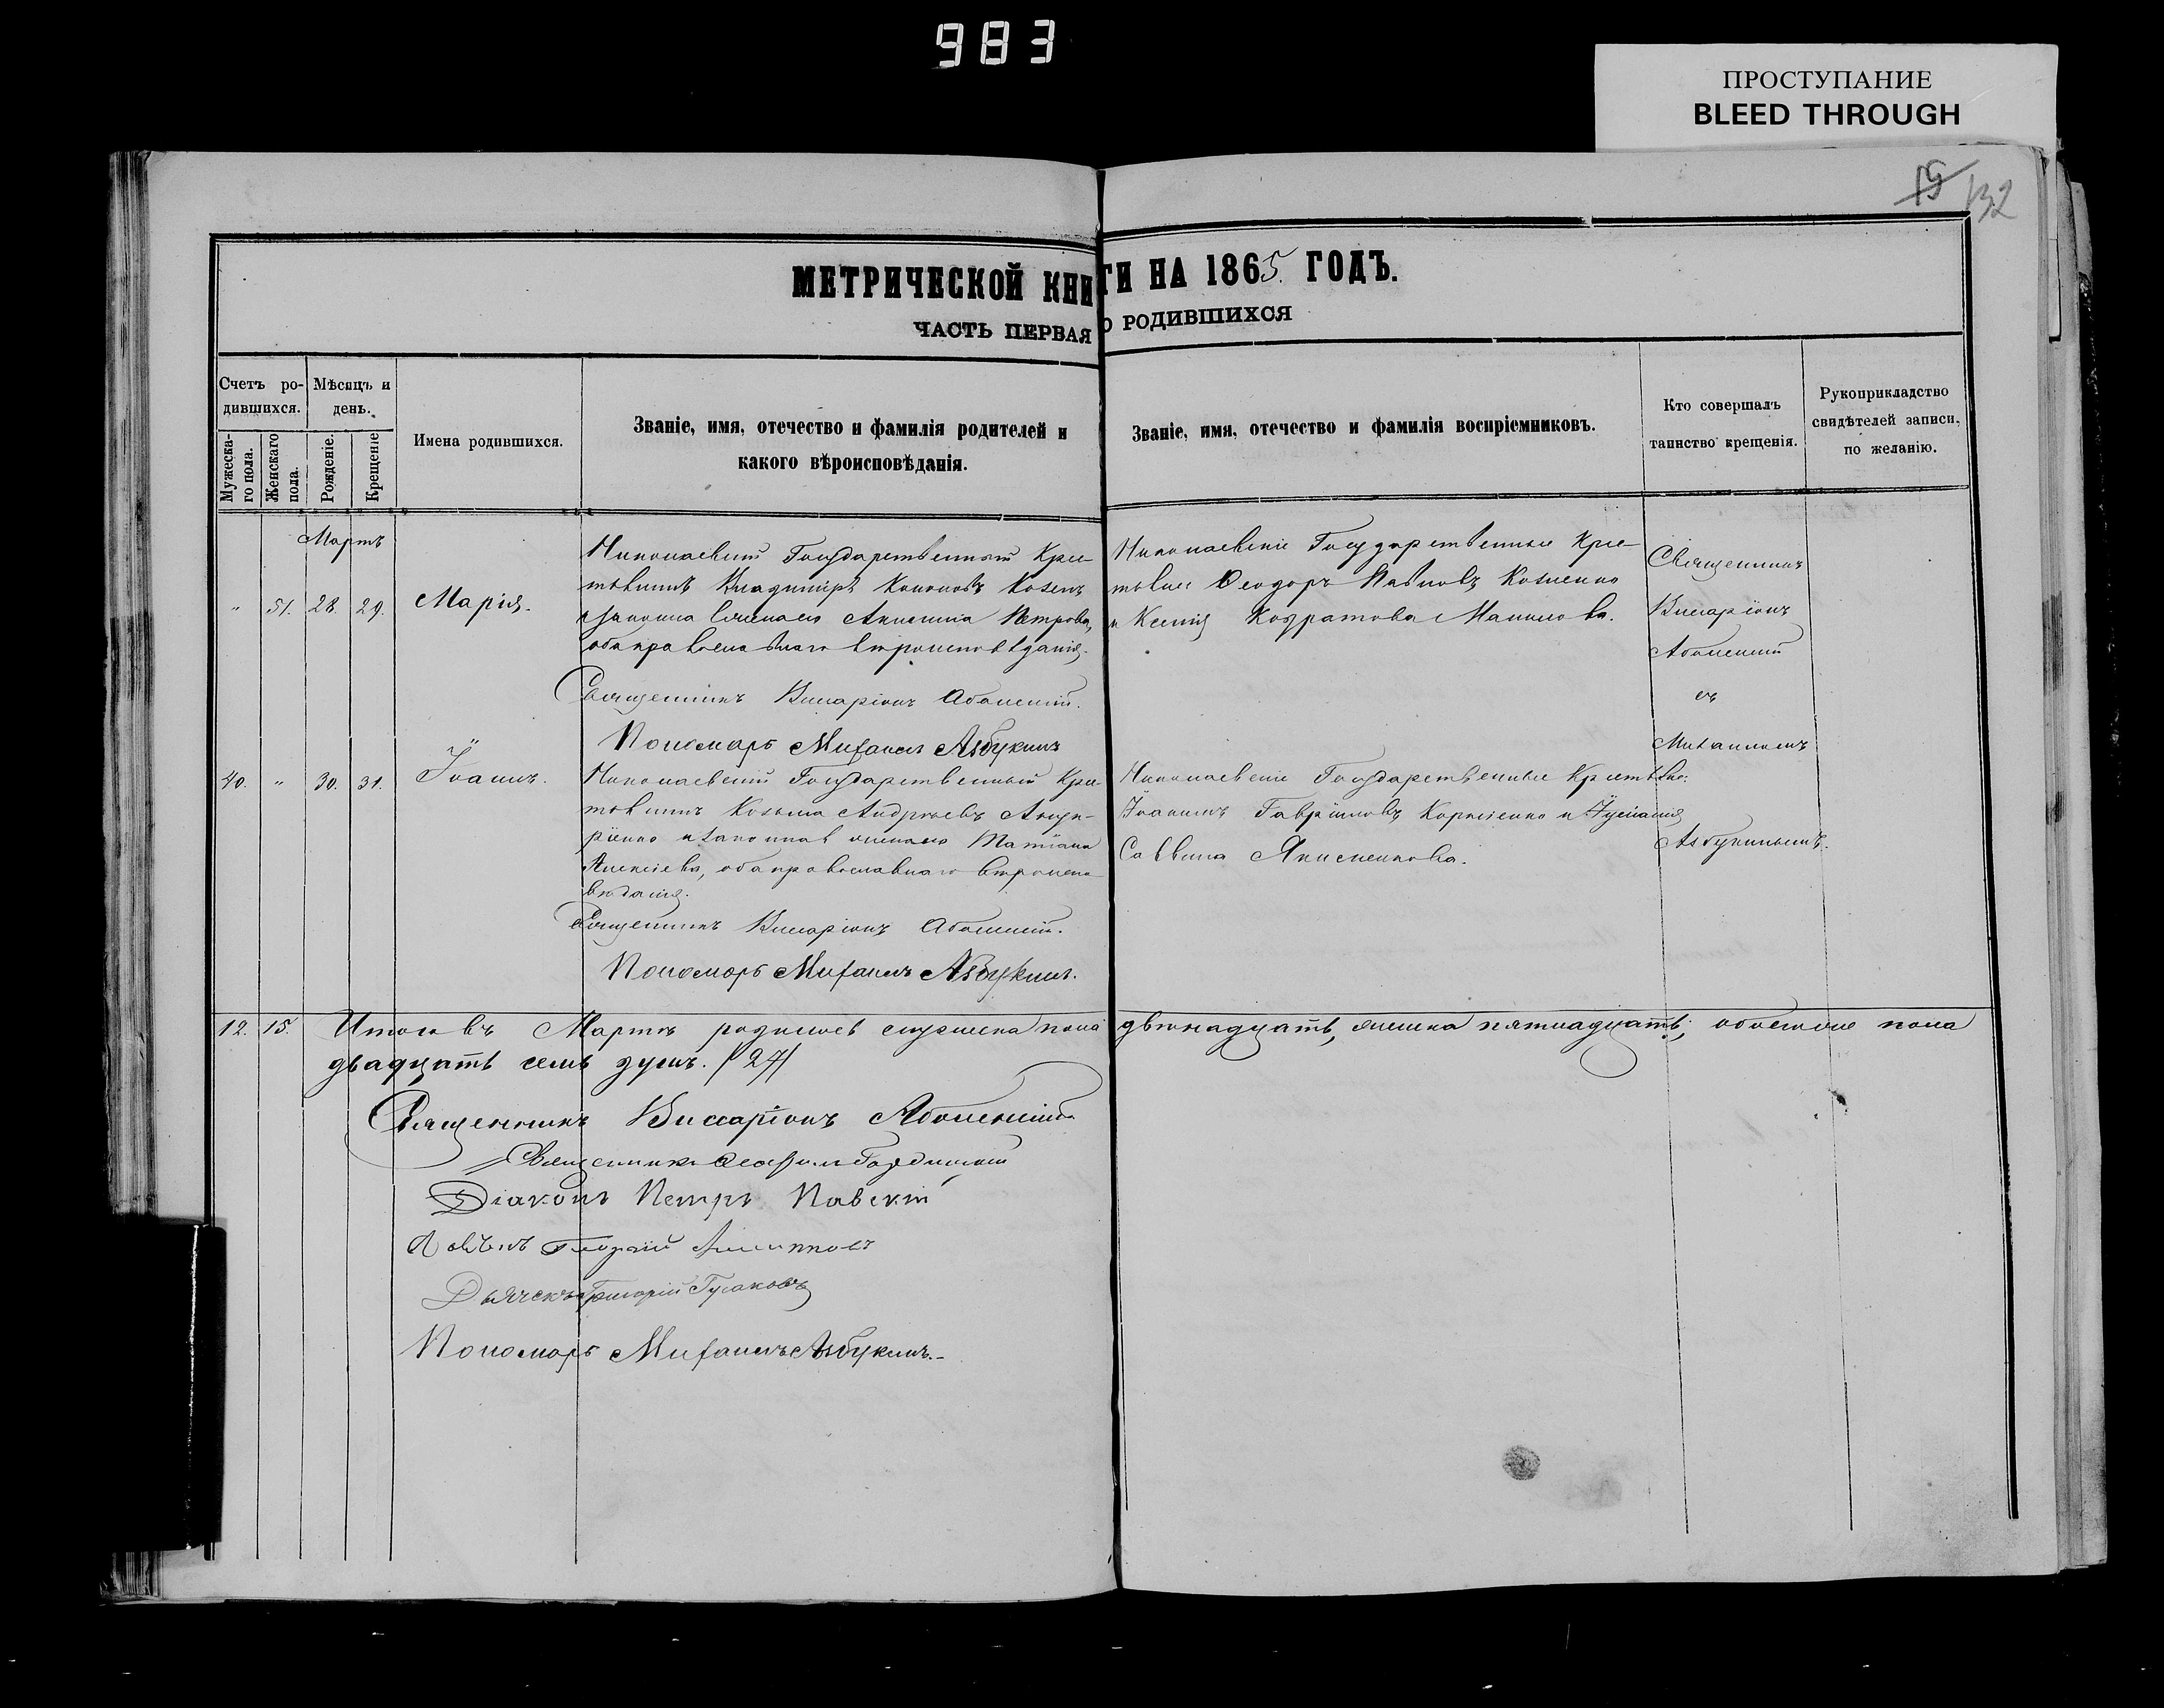 983
ПРОСТУПАНИЕ
BLEED THROUGH
19 132
МЕТРИЧЕСКОЙ КНИГИ НА 1865 ГОДЪ.
ЧАСТЬ ПЕРВАЯ О РОДИВШИХСЯ
Счетъ родившихся.
Мужескаго пола.
Женскаго пола.
Мѣсяцъ и день.
Рожденіе.
Крещеніе
Имена родившихся.
Званіе, имя, отечество и фамилія родителей и
какого вѣроисповѣданія.
Званіе, имя, отечество и фамилія воспріемниковъ.
Кто совершалъ
таинство крещенія.
Рукоприкладство
свидѣтелей записи,
по желанію.
Мартъ
" 51. 28. 29. Марія.
Николаевскій Государственный Крес-
тьянинъ Владиміръ Кононовъ
законная жена его Петрова,
оба православнаго вѣроисповѣданія.
Священникъ Виссаріонъ Аболенскій.
Пономарь Михаилъ Азбукинъ
Николаевскіе Государственные Крес-
тьяне Ѳеодоръ Павловъ Козленко
и Ксенія Кодратова
Священникъ
Виссаріонъ
Аболенскій
съ
Михаиломъ
Азбукинымъ.
40. " 30. 31. Іоаннъ.
Николаевскій Государственный Крес-
тьянинъ Козьма Андреевъ
и законная жена его Татіана
Алексіева, оба православнаго вѣроиспо-
вѣданія.
Священникъ Виссаріонъ Аболенскій.
Пономарь Михаилъ Азбукинъ.
Николаевскіе Государственные Крестьяне:
Іоаннъ Гавріиловъ Корніенко и
Саввина Якименкова.
12. 15. Итого въ Мартѣ родилось мужеска пола двѣнадцать, женска пятнадцать, обоего пола
двадцать семь душъ. /27/
Священникъ Виссаріонъ Аболенскій
Священникъ
Діаконъ Петръ Павскій
Дьячекъ Григорій Гусаковъ
Пономарь Михаилъ Азбукинъ.